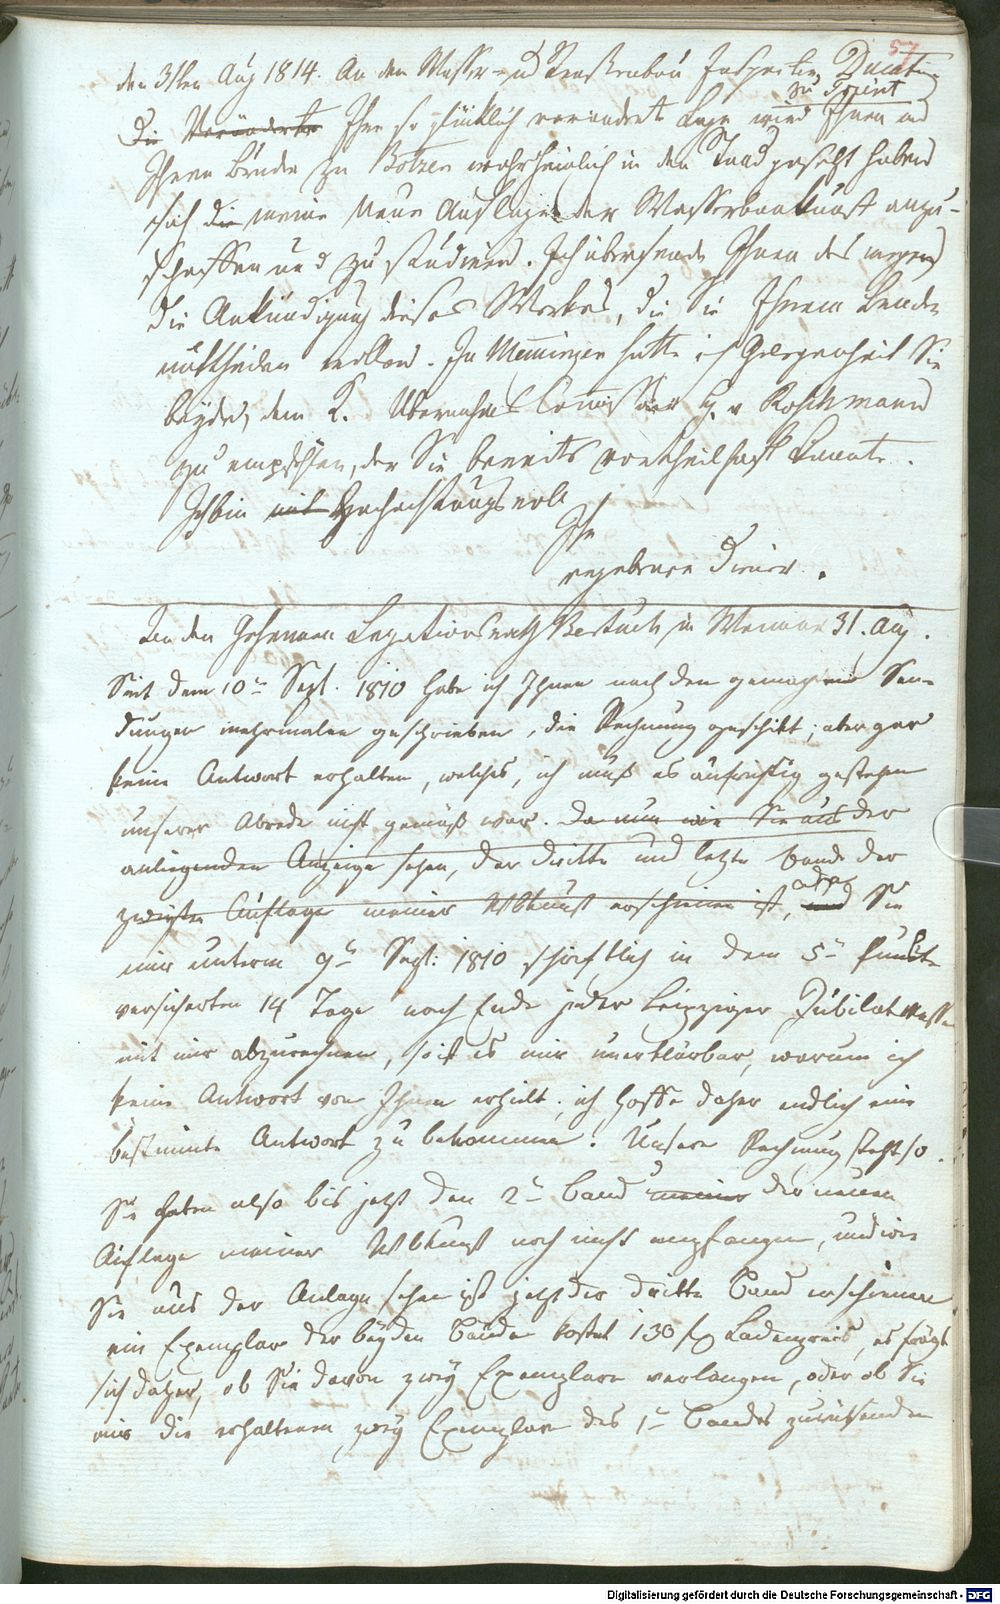 57
den 31ten Aug 1814. An den Wasser- und Straßenbau Inspector Ducati
zu Trient
Die Veränderte Ihre so glücklich veränderte Lage wird Ihnen und
Ihrem Bruder zu Botzen wahrscheinlich in den Stand gesetzt haben
sich die meine Neue Auflage der Wasserbaukunst anzu-
schaffen und zu studieren. Ich übersende Ihnen deswegen
die Ankündigung dieses Werkes, die Sie Ihrem Bruder
mittheilen wollen. In Memingen hatte ich Gelegenheit Sie
beyde, dem K. Übernahms Commissär H. v Roschmann
zu empfehlen, der Sie bereits vortheilhaft kannte.
Ich bin mit Hochachtungsvoll
Ihr
ergebener Diener.
An den Geheimen Legationsrath Bertuch in Weimar 31. Aug.
Seit dem 10ten Sept. 1810 habe ich Ihnen nach den gemachten Sen-
dungen mehrmalen geschrieben, die Rechnung geschikt; aber gar
keine Antwort erhalten, welches, ich muß es aufrichtig gestehen
unserer Abrede nicht gemäß war. Da nun wie Sie aus der
anliegenden Anzeige sehen, der dritte und letzte Band der
zweyten Auflage meiner WbKunst erschienen ist, und Sie
mir unterm 9ten Sept: 1810 schriftlich in dem 5ten Punkte
versicherten 14 Tage nach Ende jeder Leipziger Jubilatmesse
mit mir abzurechnen, so ist es mir unerklärbar, warum ich
keine Antwort von Ihnen erhielt; ich hoffe daher endlich eine
bestimmte Antwort zu bekommen! Unsere Rechnung steht so.
Sie haben also bis jetzt den 2ten Band meiner der neuen
Auflage meiner WbKunst noch nicht empfangen, und wie
Sie aus der Anlage sehen ist jetzt der dritte Band erschienen
ein Exemplar der beyden Bände kostet 130 Ladenpreis, es frägt
sich daher, ob Sie davon zwey Exemplare verlangen, oder ob Sie
mir die erhaltenen zwey Exemplare des 1ten Bandes zurüksenden
Digitalisierung gefördert durch die Deutsche Forschungsgemeinschaft - DFG